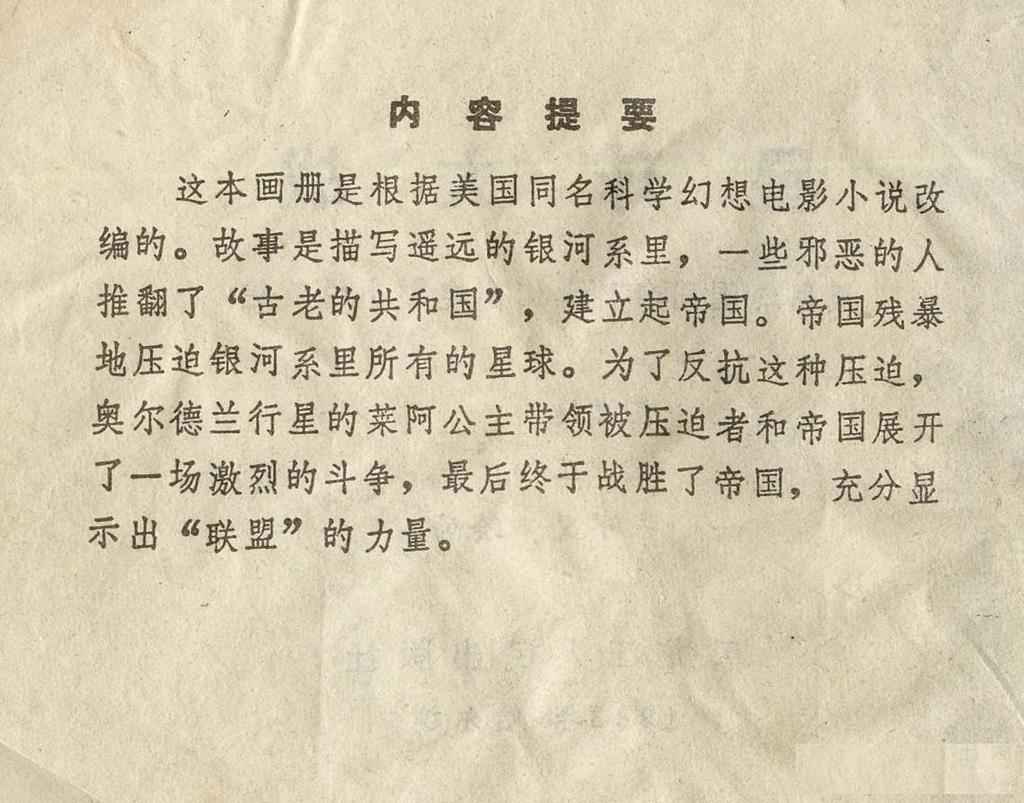 内容提要
这本画册是根据美国同名科学幻想电影小说改
编的。故事是描写遥远的银河系里，一些邪恶的人
推翻了“古老的共和国”，建立起帝国。帝国残暴
地压迫银河系里所有的星球。为了反抗这种压迫，
奥尔德兰行星的莱阿公主带领被压迫者和帝国展开
了一场激烈的斗争，最后终于战胜了帝国，充分显
示出“联盟”的力量。